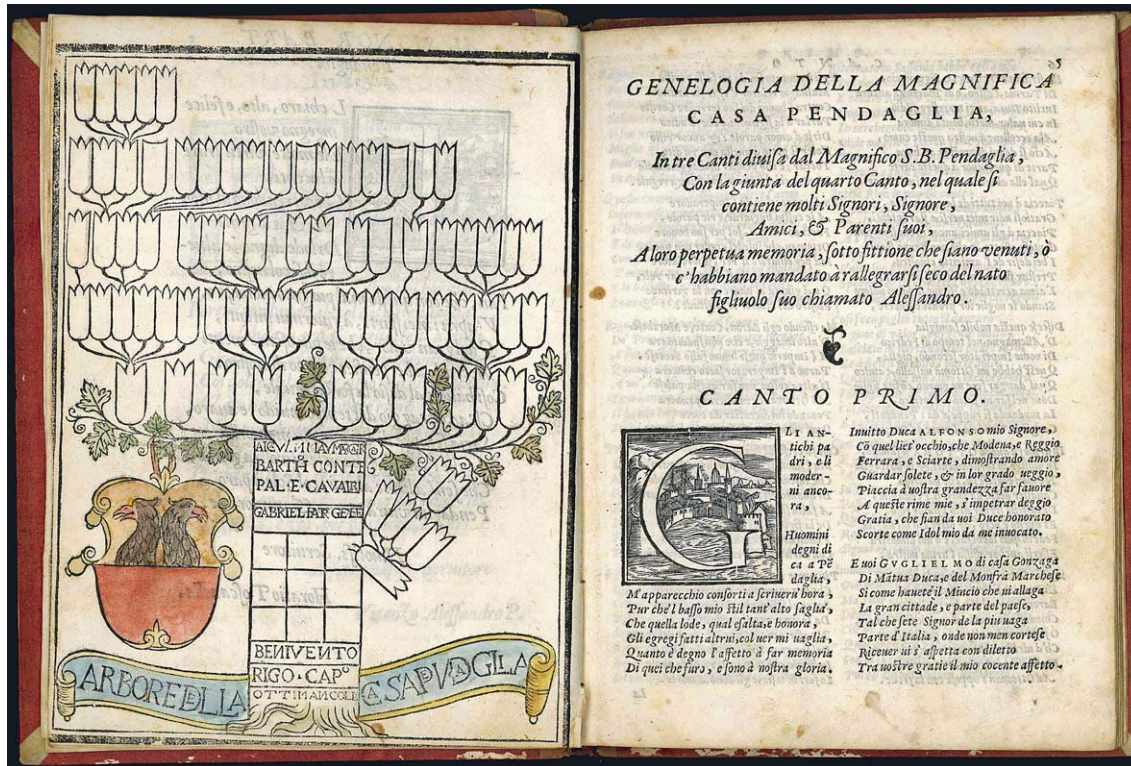 BARTH CONTE
PAL·E·CAVAIRI
GABRIEL FAR GETE
BENIVENTO
RIGO·CAPº
OTTIMAN COLL
ARBORE DELLA
5
GENELOGIA DELLA MAGNIFICA
CASA PENDAGLIA,
In tre Canti diuisa dal Magnifico S.B. Pendaglia,
Con la giunta del quarto Canto, nel quale si
contiene molti Signori, Signore,
Amici, & Parenti suoi,
A loro perpetua memoria, sotto fittione che siano venuti, ò
c'habbiano mandato à rallegrarsi seco del nato
figliuolo suo chiamato Alessandro.
CANTO PRIMO.
G
LI AN-
tichi pa
dri, e li
moder-
ni anco-
ra,
Huomini
degni di
ca a Pē
daglia,
M'apparecchio conforti a scriuerū hora,
Pur che'l basso mio stil tant'alto saglia,
Che quella lode, qual esalta, e honora,
Gli egregi fatti altrui, col uer mi uaglia,
Quanto è degno l'affetto à far memoria
Di quei che furo, e sono à nostra gloria.
Inuitto Duca ALFONSO mio Signore,
Cō quel liet'occhio, che Modena, e Reggio
Ferrara, e Sciarte, dimostrando amore
Guardar solete, & in lor grado ueggio,
Piaccia à uostra grandezza far fauore
A queste rime mie, s'impetrar deggio
Gratia, che sian da uoi Duce honorato
Scorte come Idol mio da me inuocato.
E uoi GVGLIELMO di casa Gonzaga
Di Mātua Duca, e del Monfrā Marchese
Si come hauete il Mincio che ui allaga
La gran cittade, e parte del paese,
Tal che sete Signor de la piu uaga
Parte d'Italia, onde non men cortese
Riceuer ui s'aspetta con diletto
Tra uostre gratie il mio cocente affetto.